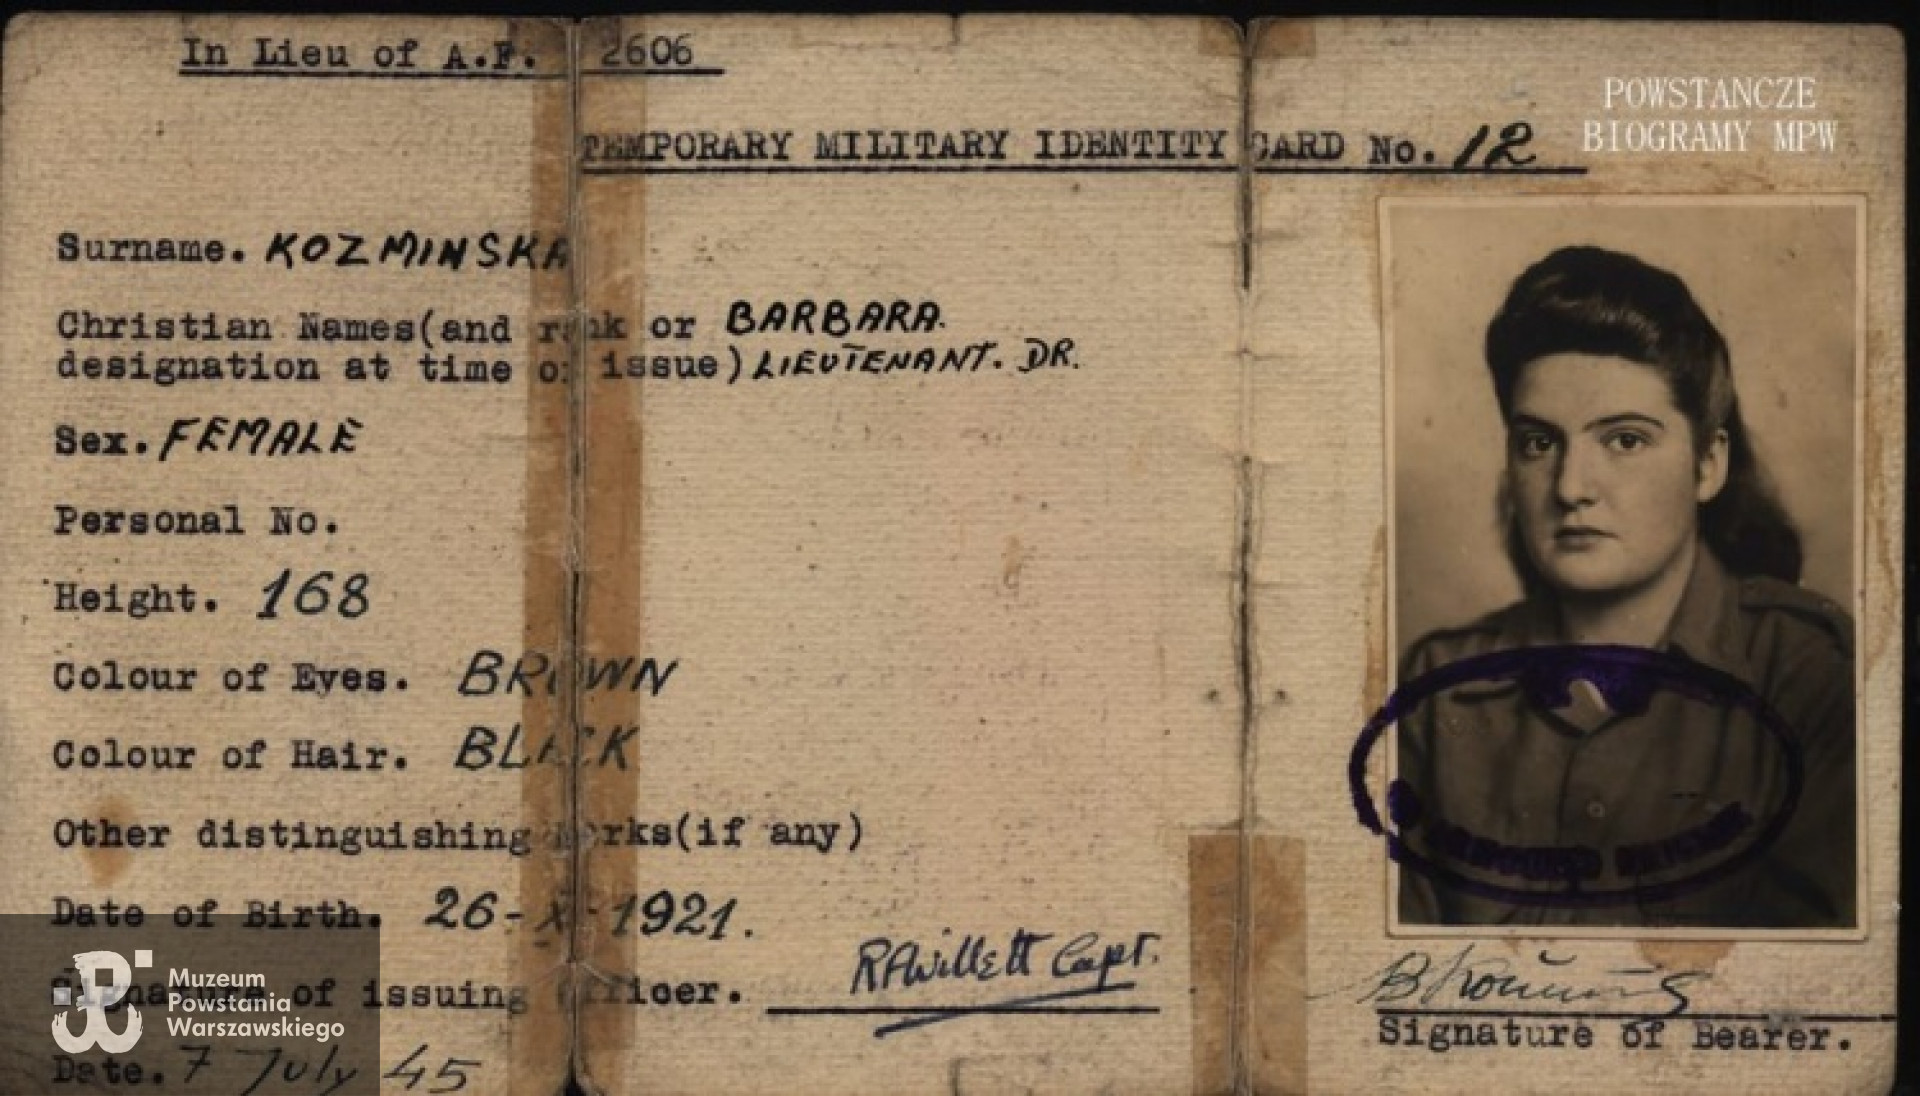 In Lieu of A.F. 2606
POWSTANCZE
BIOGRAMY MPW
TEMPORARY MILITARY IDENTITY CARD No. 12
Surname. KOZMINSKA
Christian Names(and rank or BARBARA.
designation at time of issue) LIEUTENANT. DR.
Sex. FEMALE
Personal No.
Height. 168
Colour of Eyes. BROWN
Colour of Hair. BLACK
Other distinguishing marks(if any)
Date of Birth. 26-X-1921.
Signature of issuing officer. RAWillett Capt.
Signature of Bearer.
Date. 7 July 45
Muzeum
Powstania
Warszawskiego